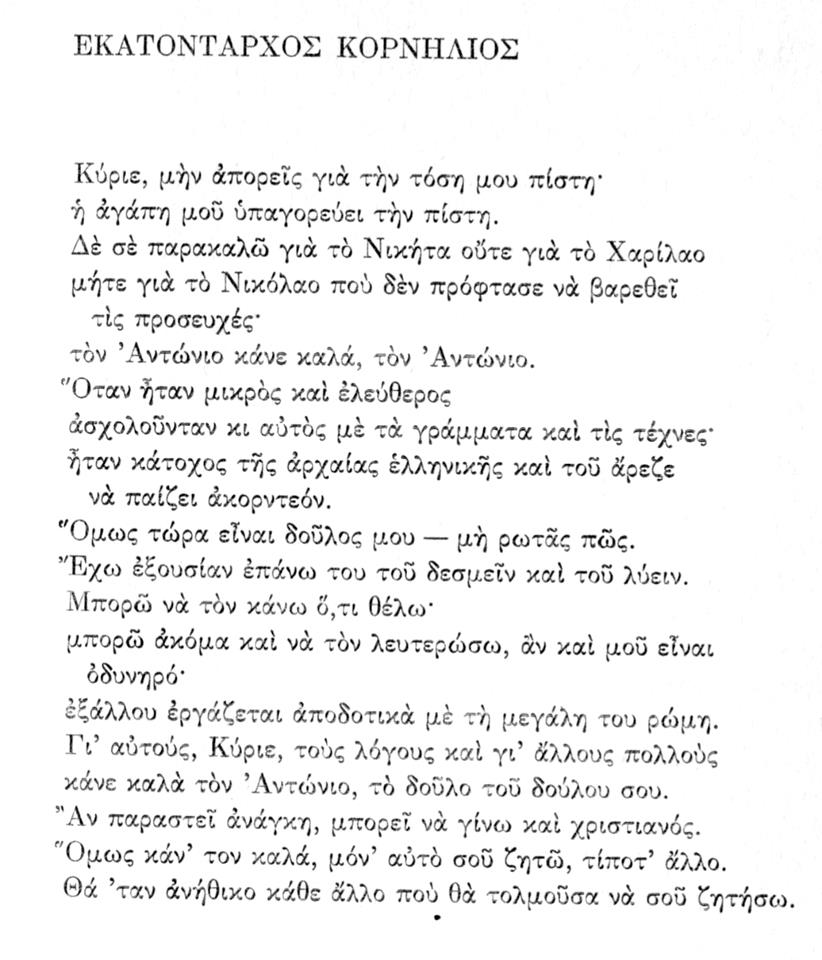 ΕΚΑΤΟΝΤΑΡΧΟΣ ΚΟΡΝΗΛΙΟΣ
Κύριε, μὴν ἀπορεῖς γιὰ τὴν τόση μου πίστη·
ἡ ἀγάπη μοῦ ὑπαγορεύει τὴν πίστη.
Δὲ σὲ παρακαλῶ γιὰ τὸ Νικήτα οὔτε γιὰ τὸ Χαρίλαο
μήτε γιὰ τὸ Νικόλαο ποὺ δὲν πρόφτασε νὰ βαρεθεῖ
τὶς προσευχές·
τὸν Ἀντώνιο κάνε καλά, τὸν Ἀντώνιο.
Ὅταν ἦταν μικρὸς καὶ ἐλεύθερος
ἀσχολοῦνταν κι αὐτὸς μὲ τὰ γράμματα καὶ τὶς τέχνες·
ἦταν κάτοχος τῆς ἀρχαίας ἑλληνικῆς καὶ τοῦ ἄρεζε
νὰ παίζει ἀκορντεόν.
Ὅμως τώρα εἶναι δοῦλος μου — μὴ ρωτᾶς πῶς.
Ἔχω ἐξουσίαν ἐπάνω του τοῦ δεσμεῖν καὶ τοῦ λύειν.
Μπορῶ νὰ τὸν κάνω ὅ,τι θέλω·
μπορῶ ἀκόμα καὶ νὰ τὸν λευτερώσω, ἂν καὶ μοῦ εἶναι
ὀδυνηρό·
ἐξάλλου ἐργάζεται ἀποδοτικὰ μὲ τὴ μεγάλη του ρώμη.
Γι’ αὐτούς, Κύριε, τοὺς λόγους καὶ γι’ ἄλλους πολλοὺς
κάνε καλὰ τὸν Ἀντώνιο, τὸ δοῦλο τοῦ δούλου σου.
Ἂν παραστεῖ ἀνάγκη, μπορεῖ νὰ γίνω καὶ χριστιανός.
Ὅμως κάν’ τον καλά, μόν’ αὐτὸ σοῦ ζητῶ, τίποτ’ ἄλλο.
Θά ’ταν ἀνήθικο κάθε ἄλλο ποὺ θὰ τολμοῦσα νὰ σοῦ ζητήσω.